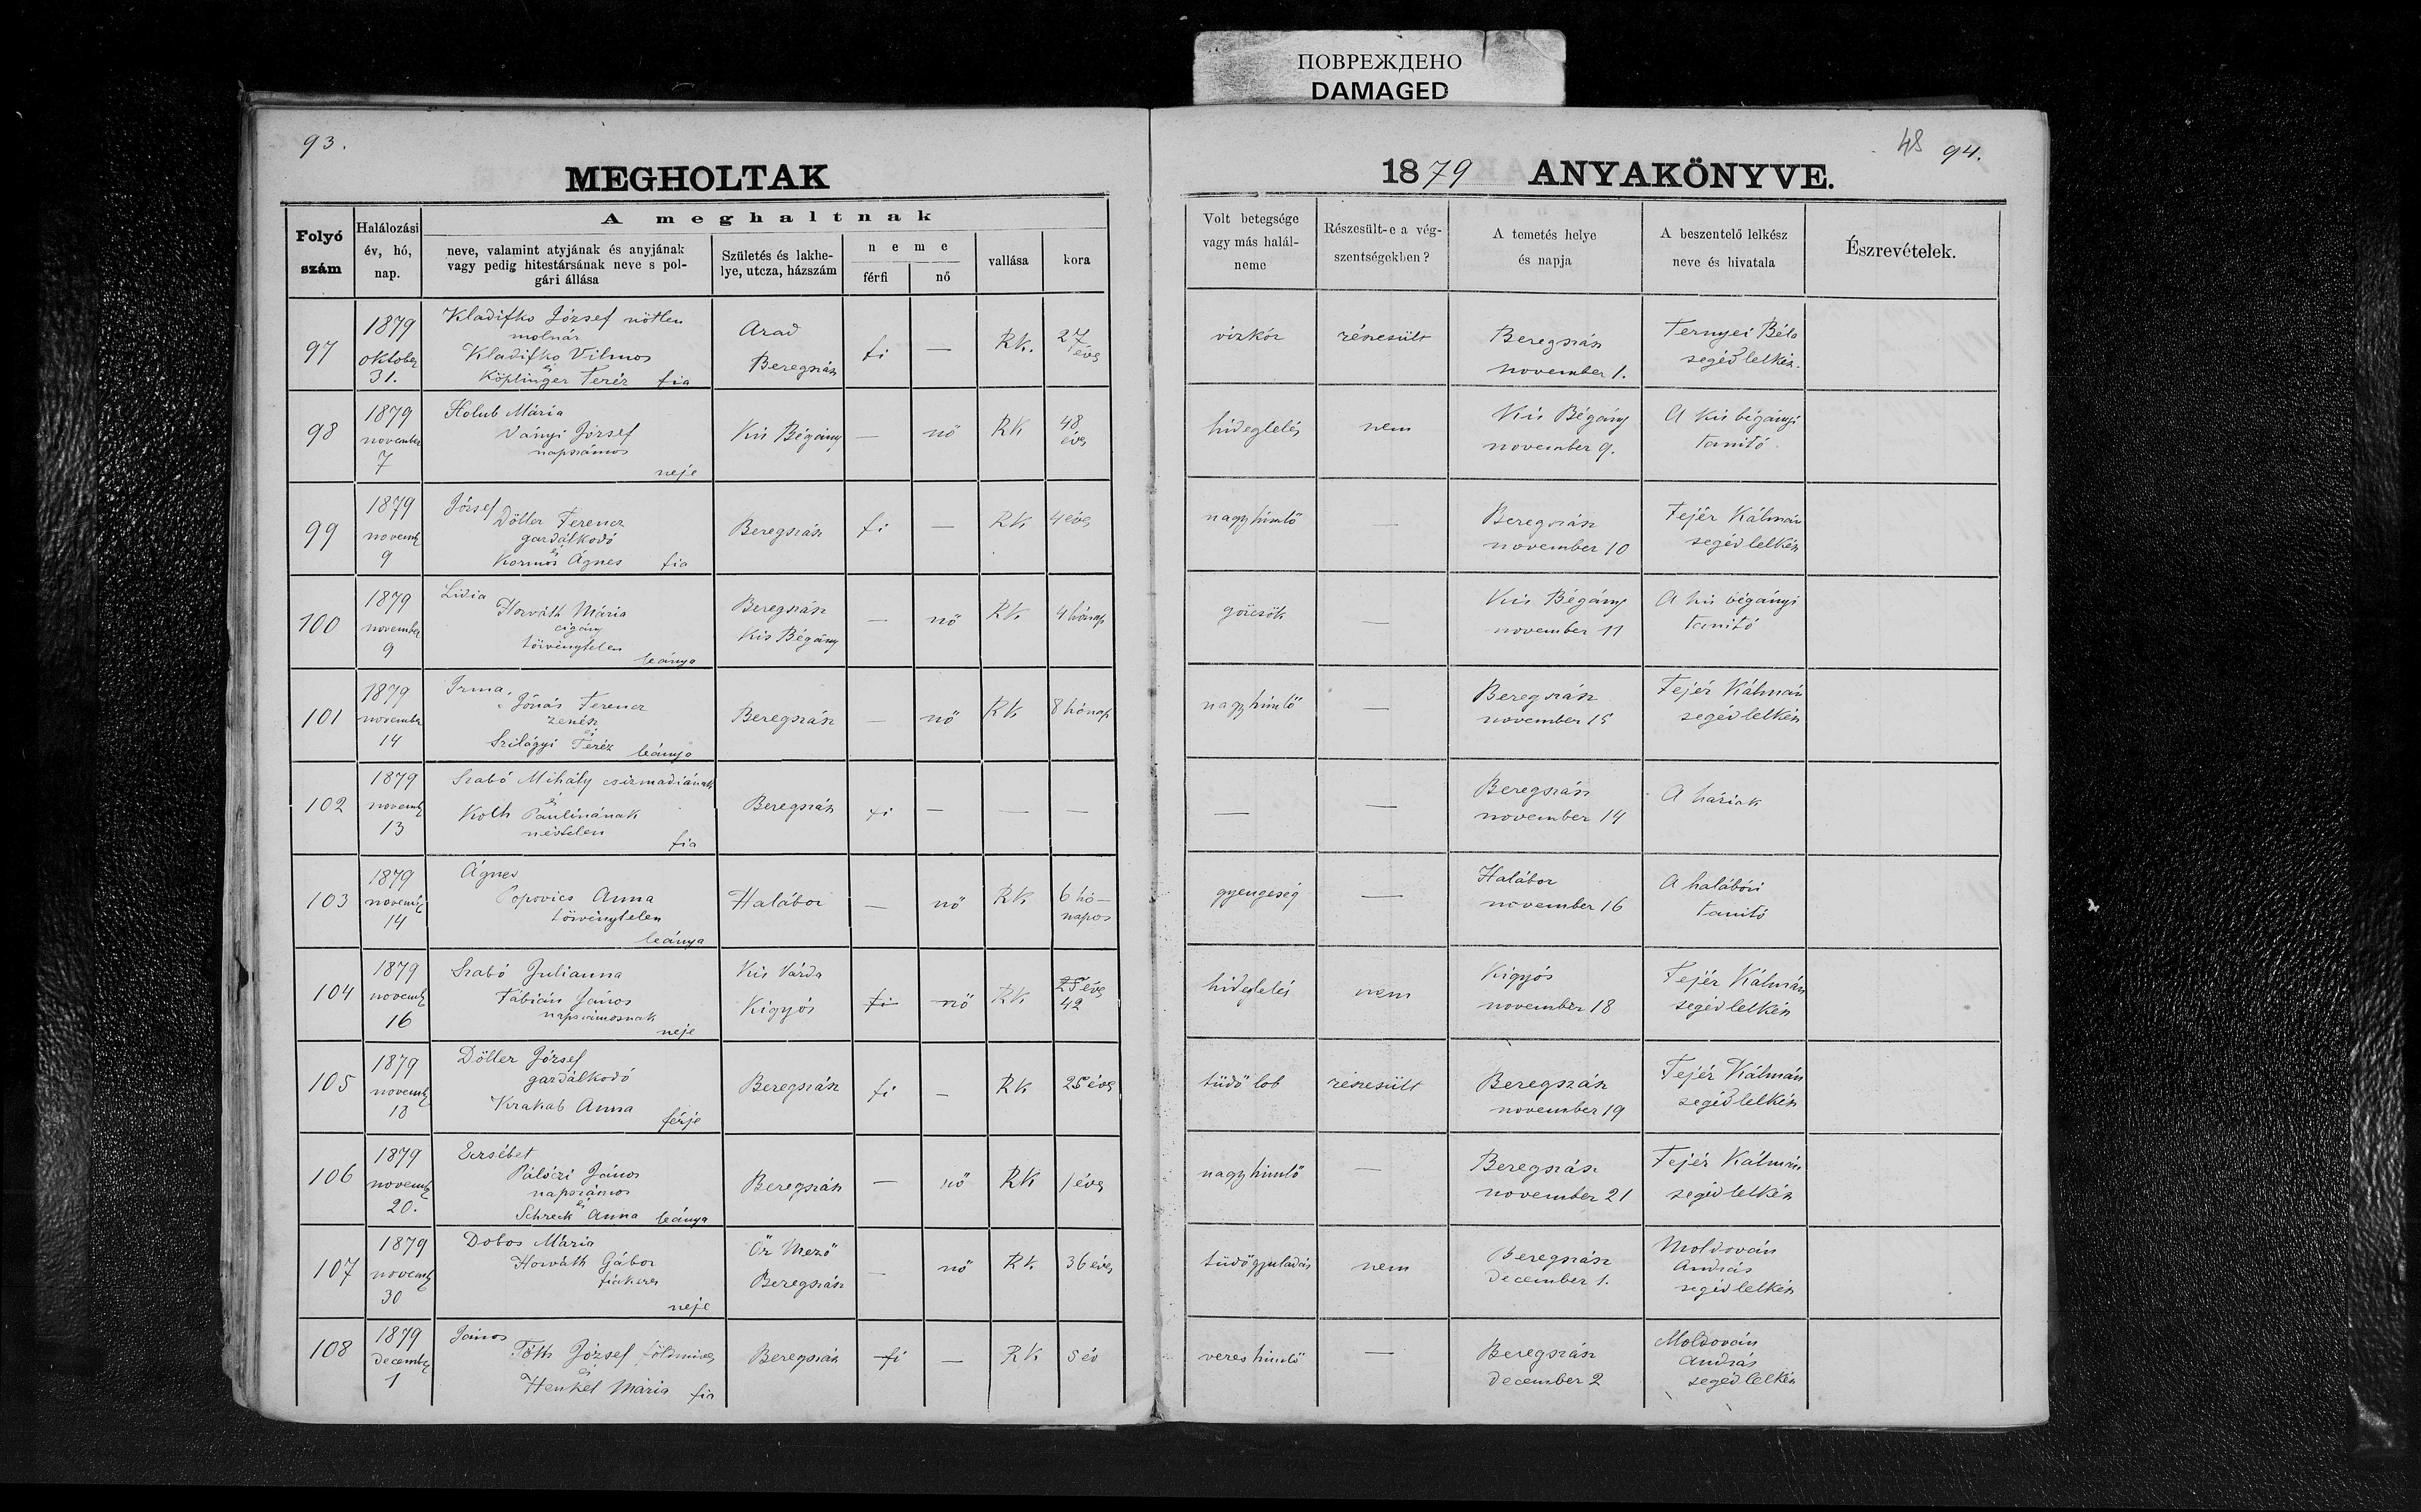 ПОВРЕЖДЕНО
DAMAGED
93.
MEGHOLTAK
48 94.
1879 ANYAKÖNYVE.
Folyó szám
Halálozási év, hó, nap.
A meghaltnak
neve, valamint atyjának és anyjának vagy pedig hitestársának neve s polgári állása
Születés és lakhelye, utcza, házszám
neme
férfi
nő
vallása
kora
Volt betegsége vagy más halálneme
Részesült-e a végszentségekben?
A temetés helye és napja
A beszentelő lelkész neve és hivatala
Észrevételek.
97
1879
oktober
31.
Kladifko József nőtlen
molnár
Kladifko Vilmos
és
Köplinger Teréz fia
Arad
Beregszász
fi
—
RK.
27
éves
vízkór
részesült
Beregszász
november 1.
Ternyei Béla
segédlelkész.
98
1879
november
7
Holub Mária
Ványi József
napszámos
neje
Kis Bégány
—
nő
RK
48
éves
hideglelés
nem
Kis Bégány
november 9.
A kis bégányi
tanító.
99
1879
novemb
9
József
Döller Ferencz
gazdálkodó
és
Kormos Ágnes fia
Beregszász
fi
—
RK
4 éves
nagyhimlő
—
Beregszász
november 10
Fejér Kálmán
segédlelkész
100
1879
november
9
Lidia
Horváth Mária
czigány
törvénytelen
leánya
Beregszász
Kis Bégány
—
nő
RK
4 hónap
görcsök
—
Kis Bégány
november 11
A kis bégányi
tanító
101
1879
novembr
14
Irma,
Jónás Ferencz
zenész
és
Szilágyi Teréz leánya
Beregszász
—
nő
RK
8 hónap
nagyhimlő
—
Beregszász
november 15
Fejér Kálmán
segédlelkész
102
1879
novemb
13
Szabó Mihály csizmadiának
és
Koth Paulinának
névtelen
fia
Beregszász
fi
—
—
—
—
—
Beregszász
november 14
A háziak
103
1879
novemb
14
Ágnes
Popovics Anna
törvénytelen
leánya
Halábor
—
nő
RK
6 hó-
napos
gyengeség
—
Halábor
november 16
A halábóri
tanító
104
1879
novemb
16
Szabó Julianna
Fábián János
napszámosnak
neje
Kis Várda
Kigyós
fi
nő
RK
25 éves
42
hideglelés
nem
Kigyós
november 18
Fejér Kálmán
segédlelkész
105
1879
novemb
18
Döller József
gazdálkodó
Krakab Anna
férje
Beregszász
fi
—
RK
25 éves
tüdő lob
részesült
Beregszász
november 19
Fejér Kálmán
segédlelkész
106
1879
novemb
20.
Erzsébet
Pálóczi János
napszámos
és
Schreck Anna leánya
Beregszász
—
nő
RK
1 éves
nagyhimlő
—
Beregszász
november 21
Fejér Kálmán
segédlelkész
107
1879
novemb
30
Dobos Mária
Horváth Gábor
fiakeres
neje
Őr Mező
Beregszász
—
nő
RK.
36 éves
tüdőgyuladás
nem
Beregszász
december 1.
Moldován
András
segédlelkész
108
1879
decemb
1
János
Tóth József földmives
és
Henkel Mária fia
Beregszász
fi
—
RK
5 év
veres himlő
—
Beregszász
december 2
Moldován
András
segédlelkész